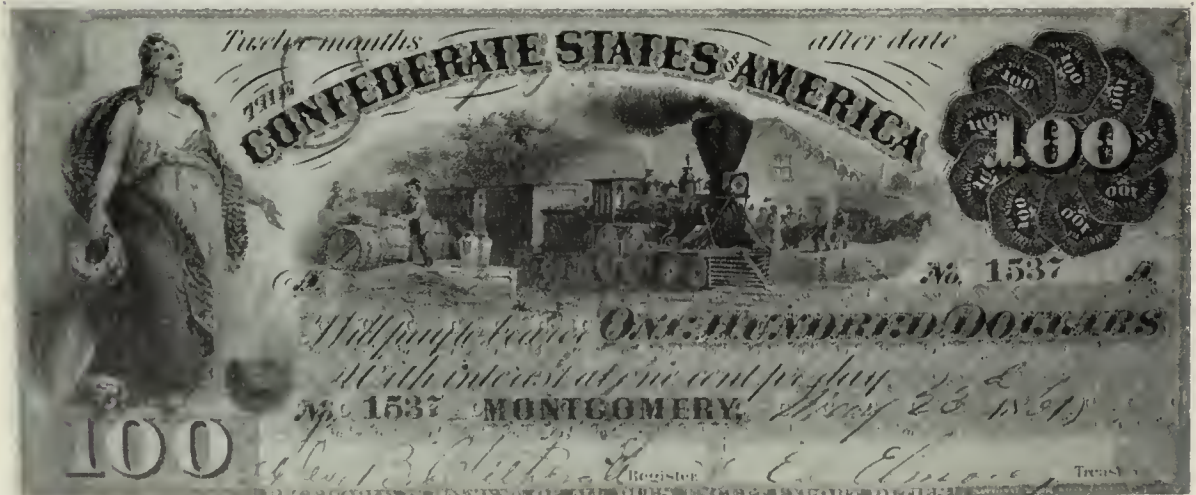 Twelve months after date
THE
CONFEDERATE STATES OF AMERICA
100
No. 1537 A
A
Will pay to bearer ONE HUNDRED DOLLARS
With interest at one cent per day
No. 1537 MONTGOMERY, May 1861
100
Register E. C. Elmore Treas